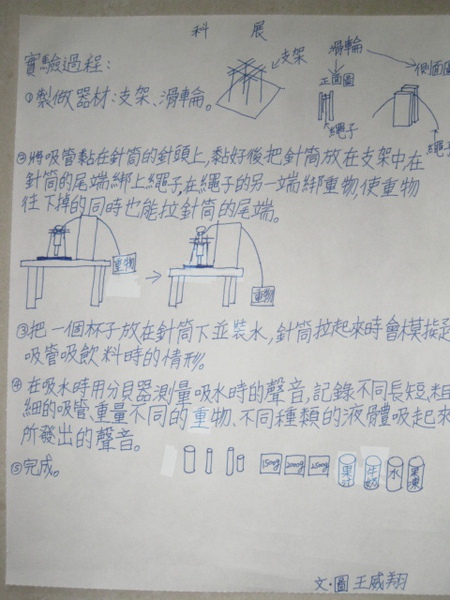 科 展
實驗過程:
①製做器材:支架、滑輪。
支架
滑輪
正面圖
側面圖
繩子
繩子
②將吸管黏在針筒的針頭上,黏好後把針筒放在支架中,在
針筒的尾端綁上繩子,在繩子的另一端綁重物,使重物
往下掉的同時也能拉針筒的尾端。
重物
重物
③把一個杯子放在針筒下並裝水,針筒拉起來時會模擬
吸管吸飲料時的情形。
④在吸水時用分貝器測量吸水時的聲音,記錄不同長短、粗
細的吸管、重量不同的重物、不同種類的液體吸起來
所發出的聲音。
⑤完成。
1500g 2000g 2500g 果汁 牛奶 水 果凍
文·圖 王威翔